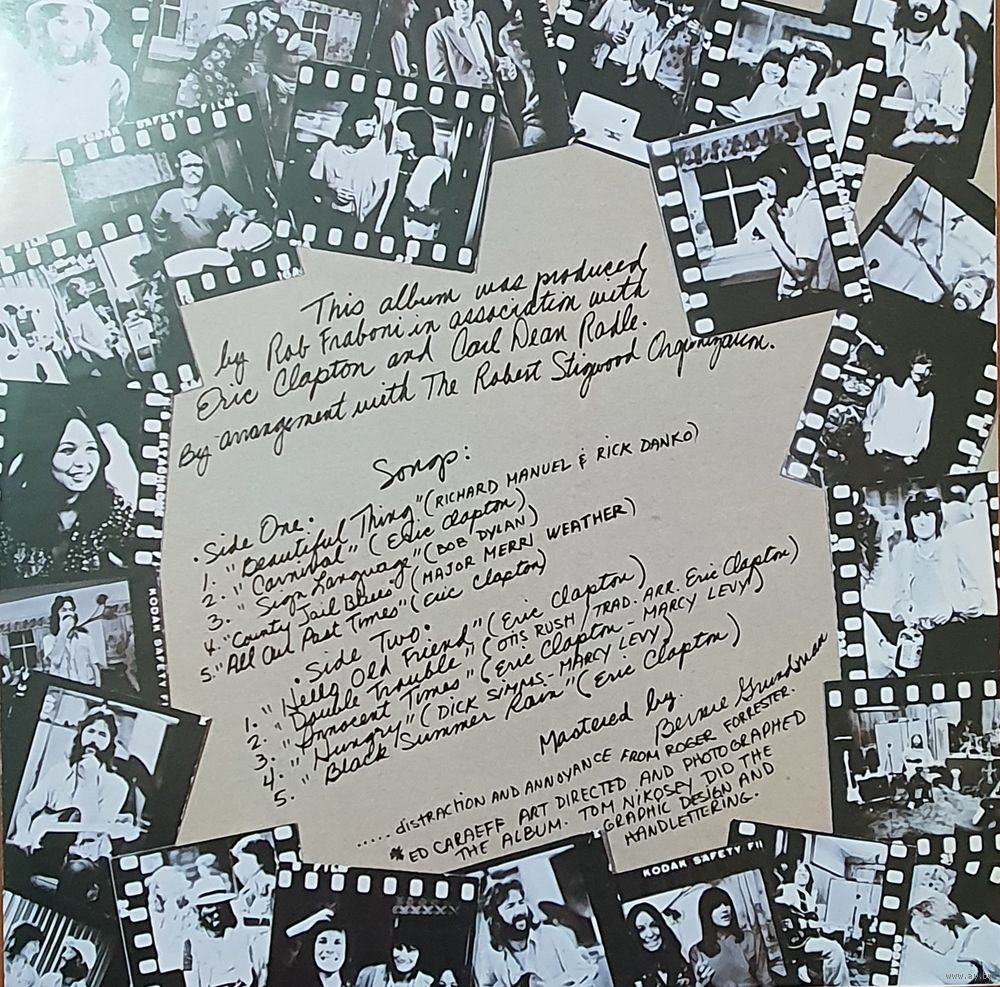 KODAK SAFETY FILM
This album was produced
by Rob Fraboni in association with
Eric Clapton and Carl Dean Radle.
By arrangement with The Robert Stigwood Organization.
Songs:
• Side One •
1. "Beautiful Thing" (RICHARD MANUEL & RICK DANKO)
2. "Carnival" (Eric Clapton)
3. "Sign Language" (BOB DYLAN)
4. "County Jail Blues" (MAJOR MERRI WEATHER)
5. "All Our Past Times" (Eric Clapton)
• Side Two •
1. "Hello Old Friend" (Eric Clapton)
2. "Double Trouble" (OTIS RUSH / TRAD. ARR. Eric Clapton)
3. "Innocent Times" (Eric Clapton - MARCY LEVY)
4. "Hungry" (DICK SIMMS - MARCY LEVY)
5. "Black Summer Rain" (Eric Clapton)
Mastered by:
Bernie Grundman
..... DISTRACTION AND ANNOYANCE FROM ROGER FORRESTER.
* ED CARAEFF ART DIRECTED AND PHOTOGRAPHED
THE ALBUM. TOM NIKOSEY DID THE
GRAPHIC DESIGN AND
HANDLETTERING.
KODAK SAFETY F
KODAK SAFETY FIL
www.ay.by